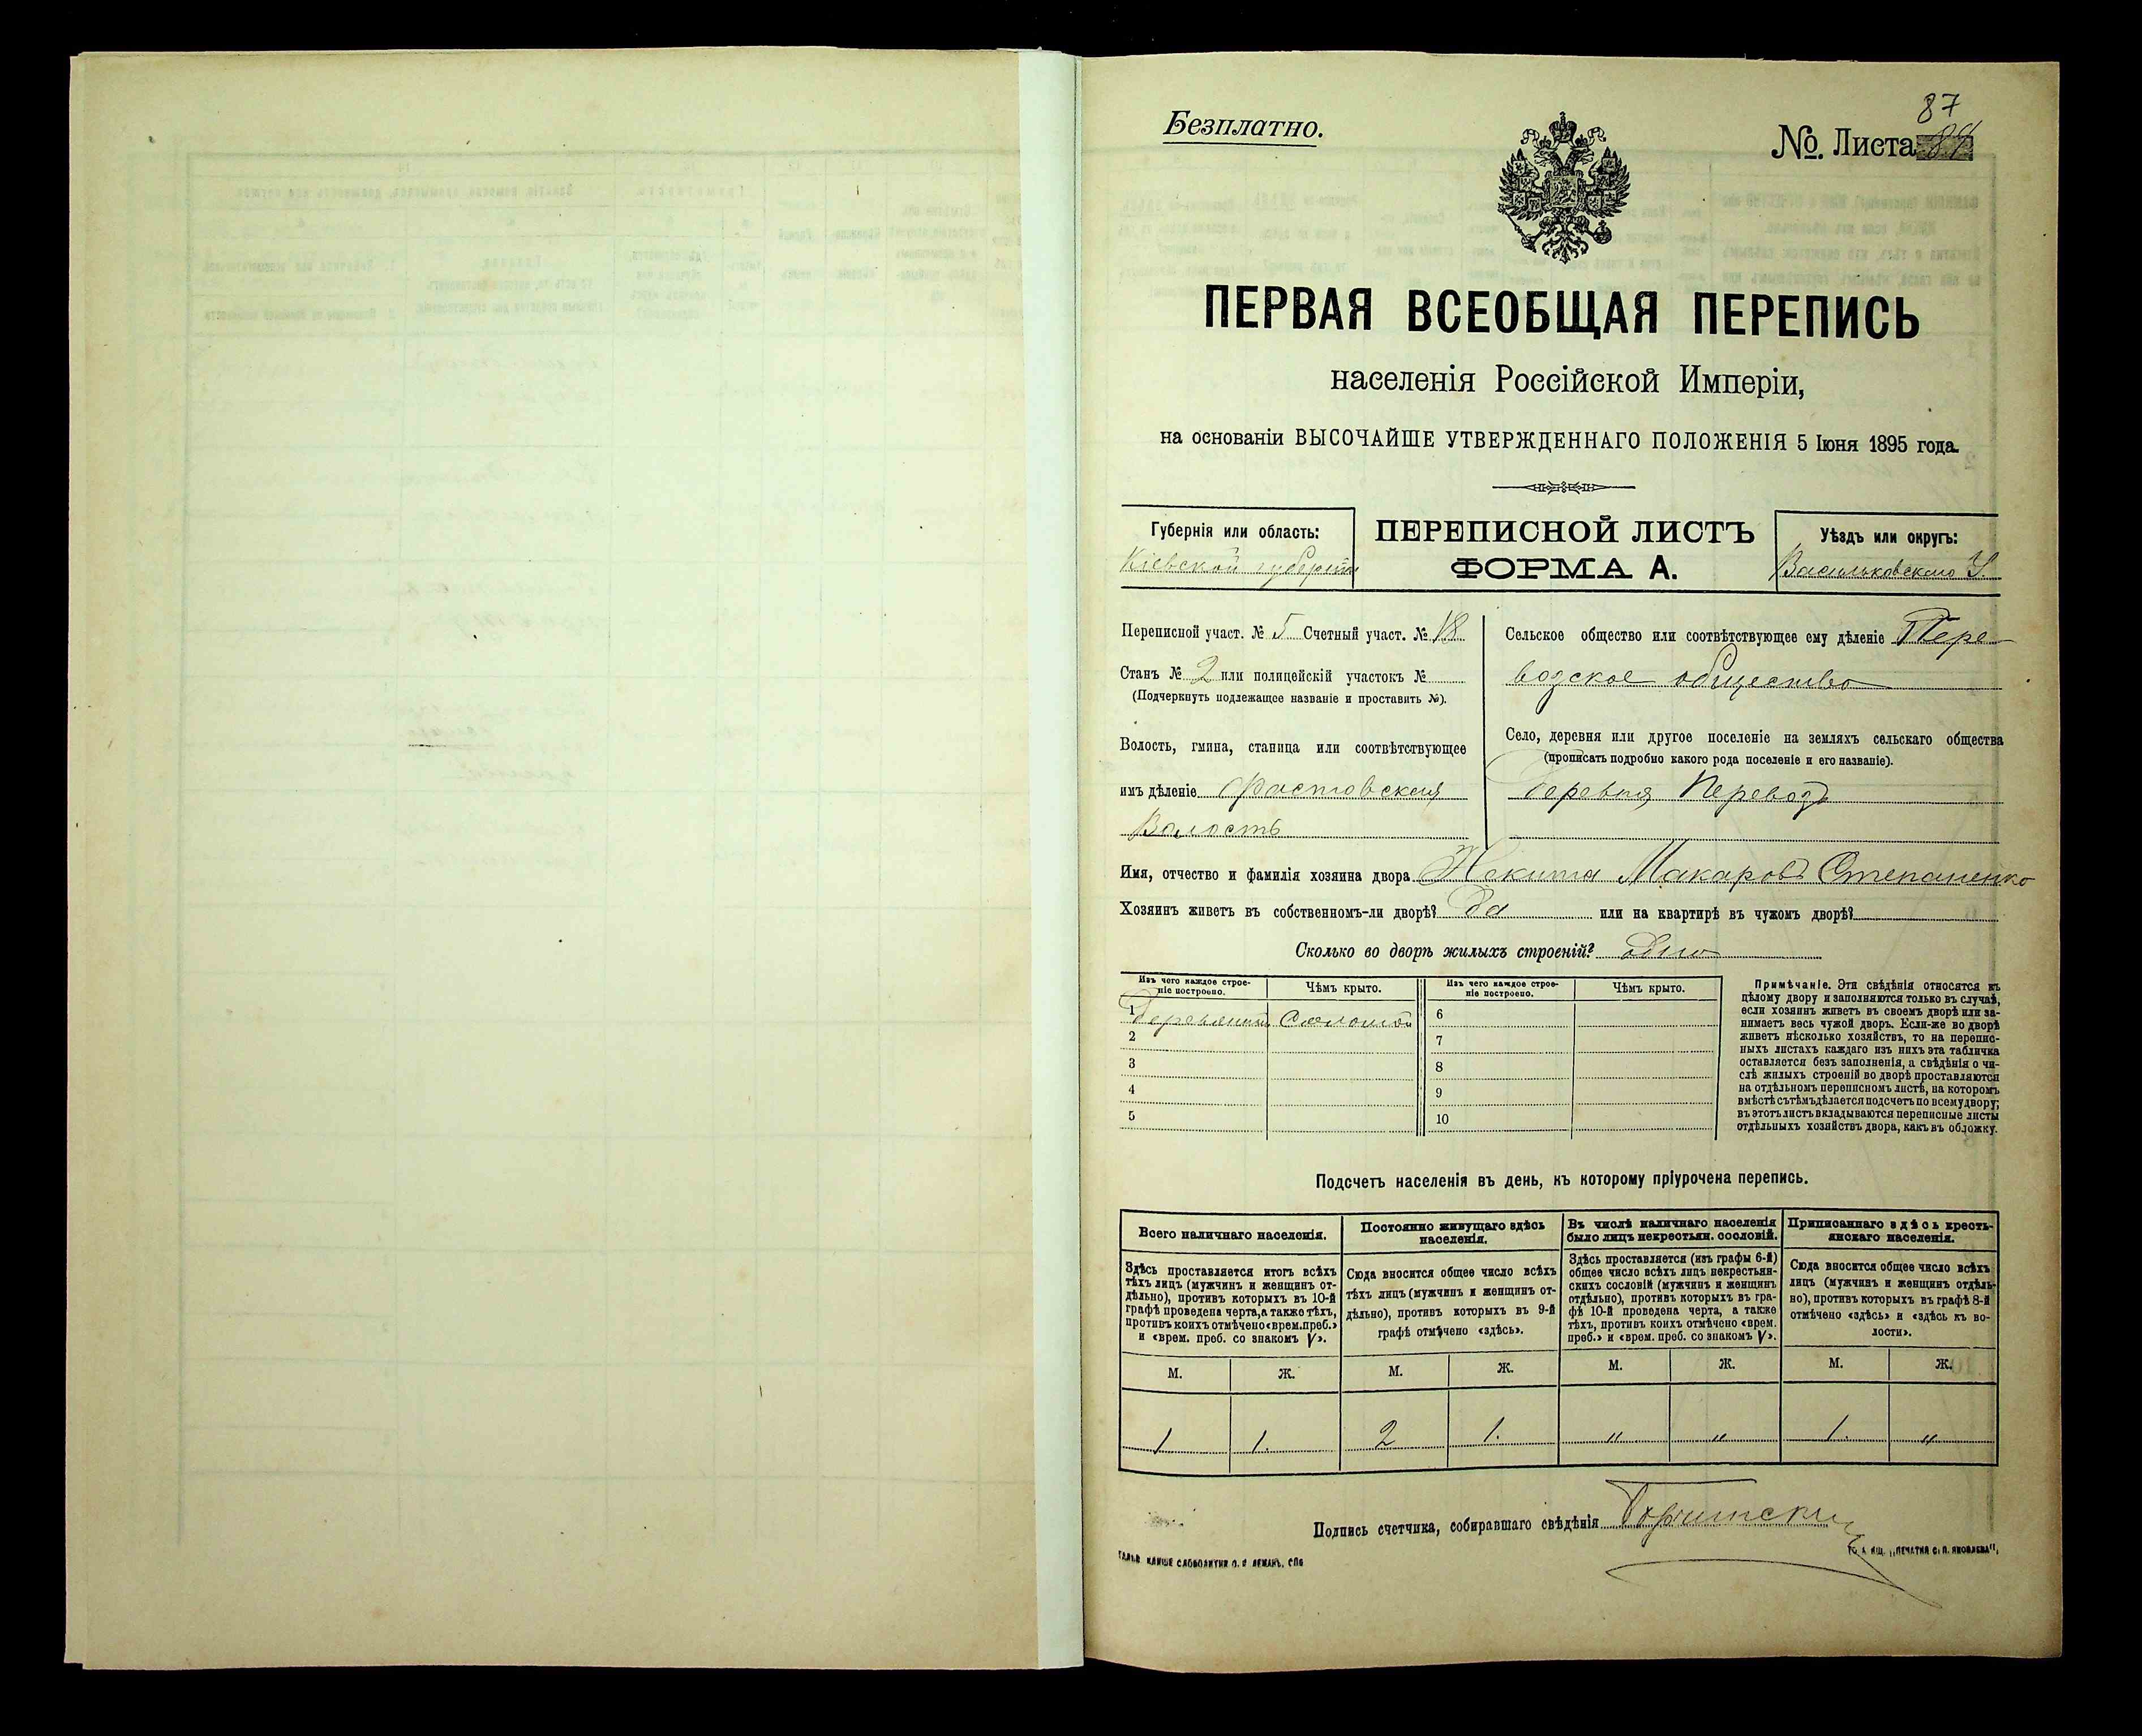 Безплатно.
87
№. Листа
ПЕРВАЯ ВСЕОБЩАЯ ПЕРЕПИСЬ
населенія Россійской Имперіи,
на основаніи ВЫСОЧАЙШЕ УТВЕРЖДЕННАГО ПОЛОЖЕНІЯ 5 Іюня 1895 года.
Губернія или область:
Кіевской губерніи
ПЕРЕПИСНОЙ ЛИСТЪ
ФОРМА А.
Уѣздъ или округъ:
Васильковскаго У.
Переписной участ. № 5 Счетный участ. № 18
Станъ № 2 или полицейскій участокъ №
(Подчеркнуть подлежащее названіе и проставить №).
Волость, гмина, станица или соотвѣтствующее
имъ дѣленіе Фастовская
Волость
Сельское общество или соотвѣтствующее ему дѣленіе Пере-
водское общество
Село, деревня или другое поселеніе на земляхъ сельскаго общества
(прописать подробно какого рода поселеніе и его названіе).
деревня Переводъ
Имя, отчество и фамилія хозяина двора Никита Макаровъ Степаненко
Хозяинъ живетъ въ собственномъ-ли дворѣ? Да или на квартирѣ въ чужомъ дворѣ?
Сколько во дворѣ жилыхъ строеній? одно
Изъ чего каждое строе-
ніе построено.
Чѣмъ крыто.
Изъ чего каждое строе-
ніе построено.
Чѣмъ крыто.
1 Соломой
2
3
4
5
6
7
8
9
10
Примѣчаніе. Эти свѣдѣнія относятся къ
цѣлому двору и заполняются только въ случаѣ,
если хозяинъ живетъ въ своемъ дворѣ или за-
нимаетъ весь чужой дворъ. Если-же во дворѣ
живетъ нѣсколько хозяйствъ, то на перепис-
ныхъ листахъ каждаго изъ нихъ эта табличка
оставляется безъ заполненія, а свѣдѣнія о чи-
слѣ жилыхъ строеній во дворѣ проставляются
на отдѣльномъ переписномъ листѣ, на которомъ
вмѣстѣ съ тѣмъ дѣлается подсчетъ по всему двору;
въ этотъ листъ вкладываются переписные листы
отдѣльныхъ хозяйствъ двора, какъ въ обложку.
Подсчетъ населенія въ день, къ которому пріурочена перепись.
Всего наличнаго населенія.
Здѣсь проставляется итогъ всѣхъ
тѣхъ лицъ (мужчинъ и женщинъ от-
дѣльно), противъ которыхъ въ 10-й
графѣ проведена черта, а также тѣхъ,
противъ коихъ отмѣчено «врем. преб.»
и «врем. преб. со знакомъ V».
Постоянно живущаго здѣсь
населенія.
Сюда вносится общее число всѣхъ
тѣхъ лицъ (мужчинъ и женщинъ от-
дѣльно), противъ которыхъ въ 9-й
графѣ отмѣчено «здѣсь».
Въ числѣ наличнаго населенія
было лицъ некрестьян. сословій.
Здѣсь проставляется (изъ графы 6-й)
общее число всѣхъ лицъ некрестьян-
скихъ сословій (мужчинъ и женщинъ
отдѣльно), противъ которыхъ въ гра-
фѣ 10-й проведена черта, а также
тѣхъ, противъ коихъ отмѣчено «врем.
преб.» и «врем. преб. со знакомъ V».
Приписаннаго здѣсь кресть-
янскаго населенія.
Сюда вносится общее число всѣхъ
лицъ (мужчинъ и женщинъ отдѣль-
но), противъ которыхъ въ графѣ 8-й
отмѣчено «здѣсь» и «здѣсь къ во-
лости».
М. Ж. М. Ж. М. Ж. М. Ж.
1 1. 2 1. " " 1. "
Подпись счетчика, собиравшаго свѣдѣнія